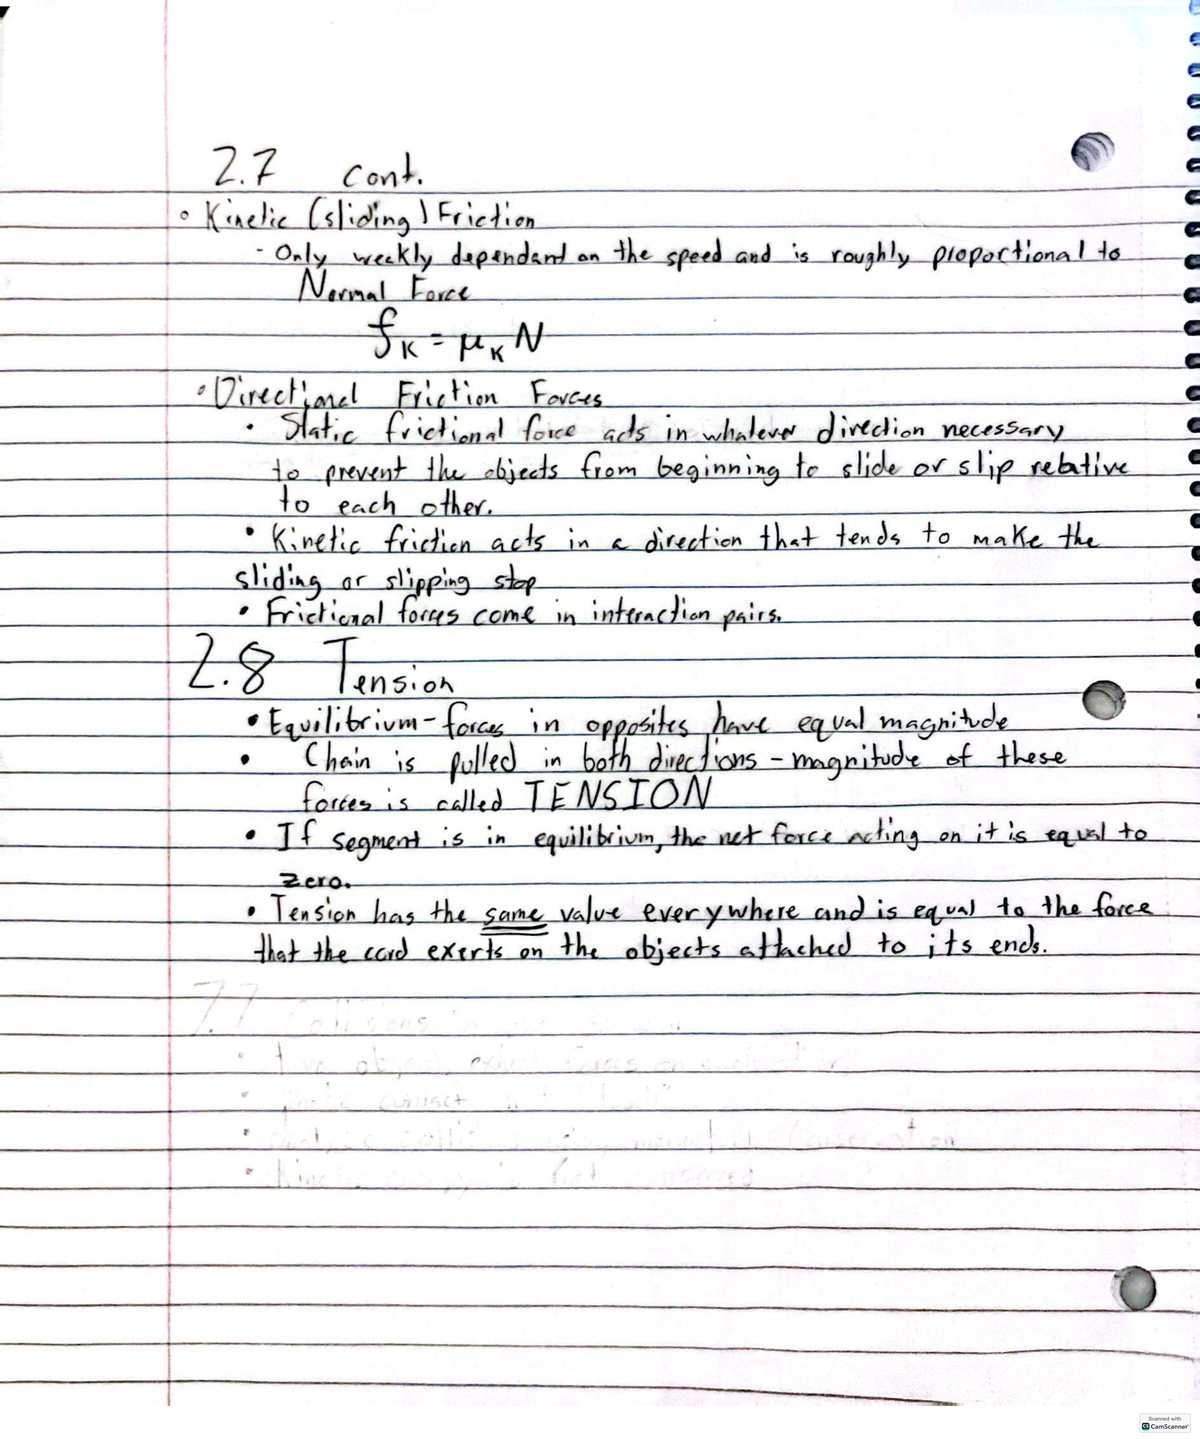 2.7 cont.
• Kinetic (sliding) Friction
- Only weakly dependant on the speed and is roughly proportional to
Normal Force
fK = μK N
• Directional Friction Forces
• Static frictional force acts in whatever direction necessary
to prevent the objects from beginning to slide or slip relative
to each other.
• Kinetic friction acts in a direction that tends to make the
sliding or slipping stop
• Frictional forces come in interaction pairs.
2.8 Tension
• Equilibrium - forces in opposites have equal magnitude
• Chain is pulled in both directions - magnitude of these
forces is called TENSION
• If segment is in equilibrium, the net force acting on it is equal to
zero.
• Tension has the same value everywhere and is equal to the force
that the cord exerts on the objects attached to its ends.
7.7 Collisions in
• Two objects exert forces on each other
• contact
• collisions
• Kinetic not
Scanned with
CamScanner